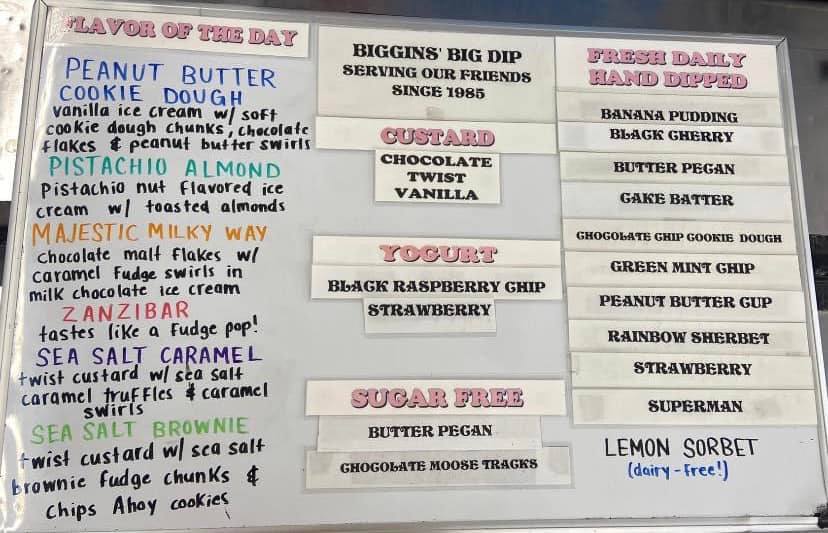 FLAVOR OF THE DAY
PEANUT BUTTER
COOKIE DOUGH
vanilla ice cream w/ soft
cookie dough chunks, chocolate
flakes & peanut butter swirls
PISTACHIO ALMOND
Pistachio nut flavored ice
cream w/ toasted almonds
MAJESTIC MILKY WAY
chocolate malt flakes w/
caramel fudge swirls in
milk chocolate ice cream
ZANZIBAR
tastes like a fudge pop!
SEA SALT CARAMEL
twist custard w/ sea salt
caramel truffles & caramel
swirls
SEA SALT BROWNIE
twist custard w/ sea salt
brownie fudge chunks &
chips Ahoy cookies
BIGGINS' BIG DIP
SERVING OUR FRIENDS
SINCE 1985
CUSTARD
CHOCOLATE
TWIST
VANILLA
YOGURT
BLACK RASPBERRY CHIP
STRAWBERRY
SUGAR FREE
BUTTER PECAN
CHOCOLATE MOOSE TRACKS
FRESH DAILY
HAND DIPPED
BANANA PUDDING
BLACK CHERRY
BUTTER PECAN
CAKE BATTER
CHOCOLATE CHIP COOKIE DOUGH
GREEN MINT CHIP
PEANUT BUTTER CUP
RAINBOW SHERBET
STRAWBERRY
SUPERMAN
LEMON SORBET
(dairy-free!)